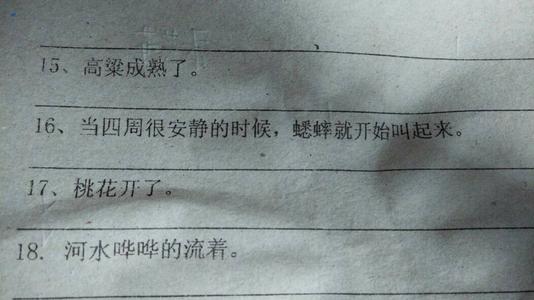 15、高粱成熟了。
16、当四周很安静的时候，蟋蟀就开始叫起来。
17、桃花开了。
18. 河水哗哗的流着。